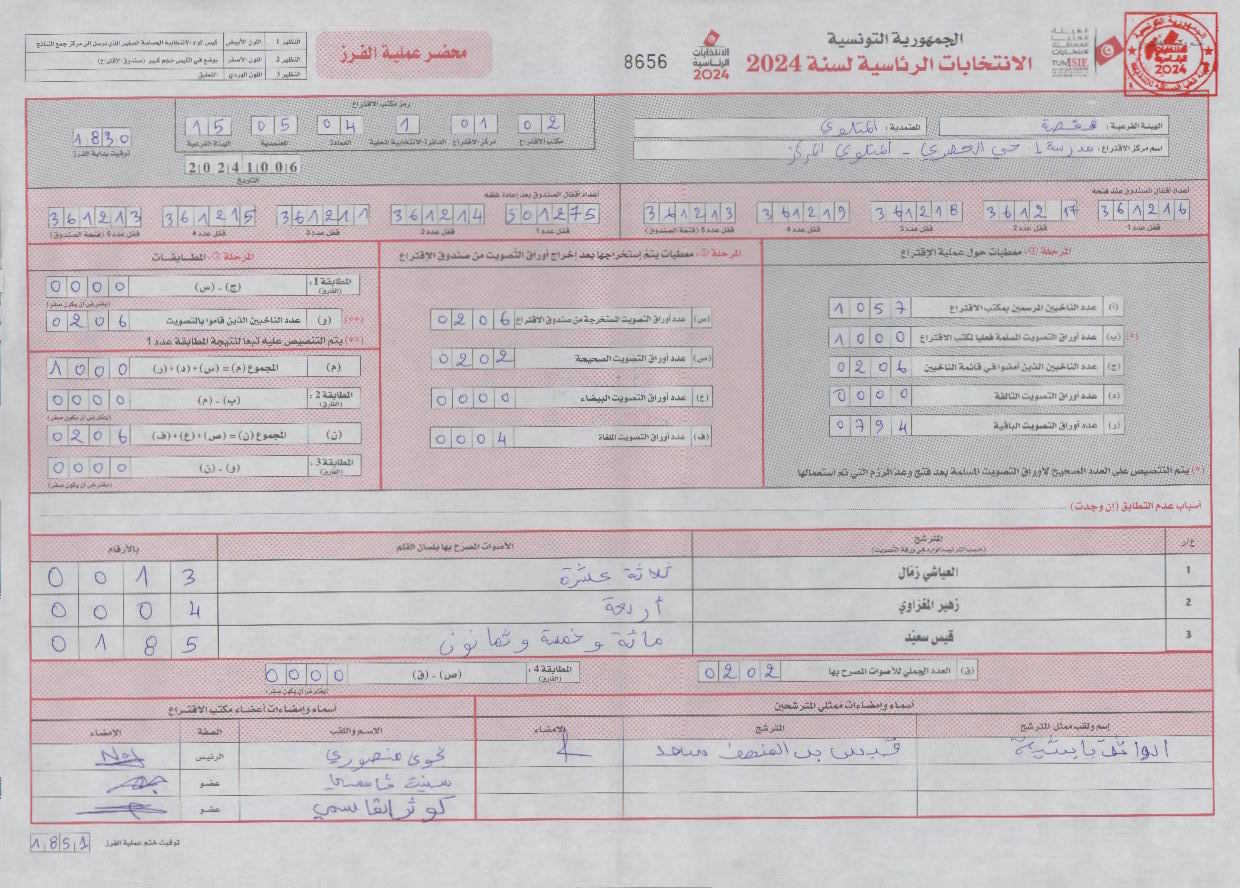 الجمهورية التونسية
الانتخابات الرئاسية لسنة 2024
الانتخابات الرئاسية 2024
8656
محضر عملية الفرز
النظير 1 اللون الأبيض
النظير 2 اللون الأصفر
النظير 3 اللون الوردي التعليق
الهيئة الفرعية : قفصة
المعتمدية : المتلوي
اسم مركز الاقتراع : مدرسة حي الحضري - المتلوي المركز
رمز مكتب الاقتراع
02 01 1 04 05 15
مكتب الاقتراع مركز الاقتراع الدائرة الانتخابية المحلية العمادة المعتمدية الهيئة الفرعية
1830
توقيت بداية الفرز
20241006
التاريخ
أعداد أقفال الصندوق عند فتحه
361216 361217 361218 361219 361213
قفل عدد 1 قفل عدد 2 قفل عدد 3 قفل عدد 4 قفل عدد 5 (فتحة الصندوق)
أعداد أقفال الصندوق بعد إعادة غلقه
501275 361214 361211 361215 361213
قفل عدد 1 قفل عدد 2 قفل عدد 3 قفل عدد 4 قفل عدد 5 (فتحة الصندوق)
المرحلة 1: معطيات حول عملية الإقتراع
(أ) عدد الناخبين المرسمين بمكتب الاقتراع 1057
(*) (ب) عدد أوراق التصويت المسلمة فعليا لمكتب الاقتراع 1000
(ج) عدد الناخبين الذين أمضوا في قائمة الناخبين 0206
(د) عدد أوراق التصويت التالفة 0000
(ر) عدد أوراق التصويت الباقية 0794
(*) يتم التنصيص على العدد الصحيح لأوراق التصويت المسلمة بعد فتح وعد الرزم التي تم استعمالها
المرحلة 2: معطيات يتم إستخراجها بعد إخراج أوراق التصويت من صندوق الاقتراع
(س) عدد أوراق التصويت المستخرجة من صندوق الاقتراع 0206
(ص) عدد أوراق التصويت الصحيحة 0202
(ع) عدد أوراق التصويت البيضاء 0000
(ف) عدد أوراق التصويت الملغاة 0004
المرحلة 3: المطابقات
المطابقة 1 : (الفارق) (ج) - (س) 0000
(يفترض أن يكون صفر)
(**) (و) عدد الناخبين الذين قاموا بالتصويت 0206
(**) يتم التنصيص عليه تبعا لنتيجة المطابقة عدد 1
(م) المجموع (م) = (س) + (د) + (ر) 1000
المطابقة 2 : (الفارق) (ب) - (م) 0000
(يفترض أن يكون صفر)
(ن) المجموع (ن) = (ص) + (ع) + (ف) 0206
المطابقة 3 : (الفارق) (و) - (ن) 0000
(يفترض أن يكون صفر)
أسباب عدم التطابق (إن وجدت)
ع/ر المترشح الأصوات المصرح بها بلسان القلم بالأرقام
(حسب الترتيب الوارد في ورقة التصويت)
1 العياشي زمال ثلاثة عشرة 0013
2 زهير المغزاوي أربعة 0004
3 قيس سعيد مائة وخمسة وثمانون 0185
(ق) العدد الجملي للأصوات المصرح بها 0202
المطابقة 4 : (الفارق) (ص) - (ق) 0000
(يفترض أن يكون صفر)
أسماء وإمضاءات ممثلي المترشحين
أسماء وإمضاءات أعضاء مكتب الاقتراع
إسم ولقب ممثل المترشح المترشح الإمضاء
الاسم واللقب الصفة الإمضاء
قيس بن المنصف سعد
نجوى منصوري الرئيس
عضو
كوثر القاسمي عضو
توقيت ختم عملية الفرز 1851